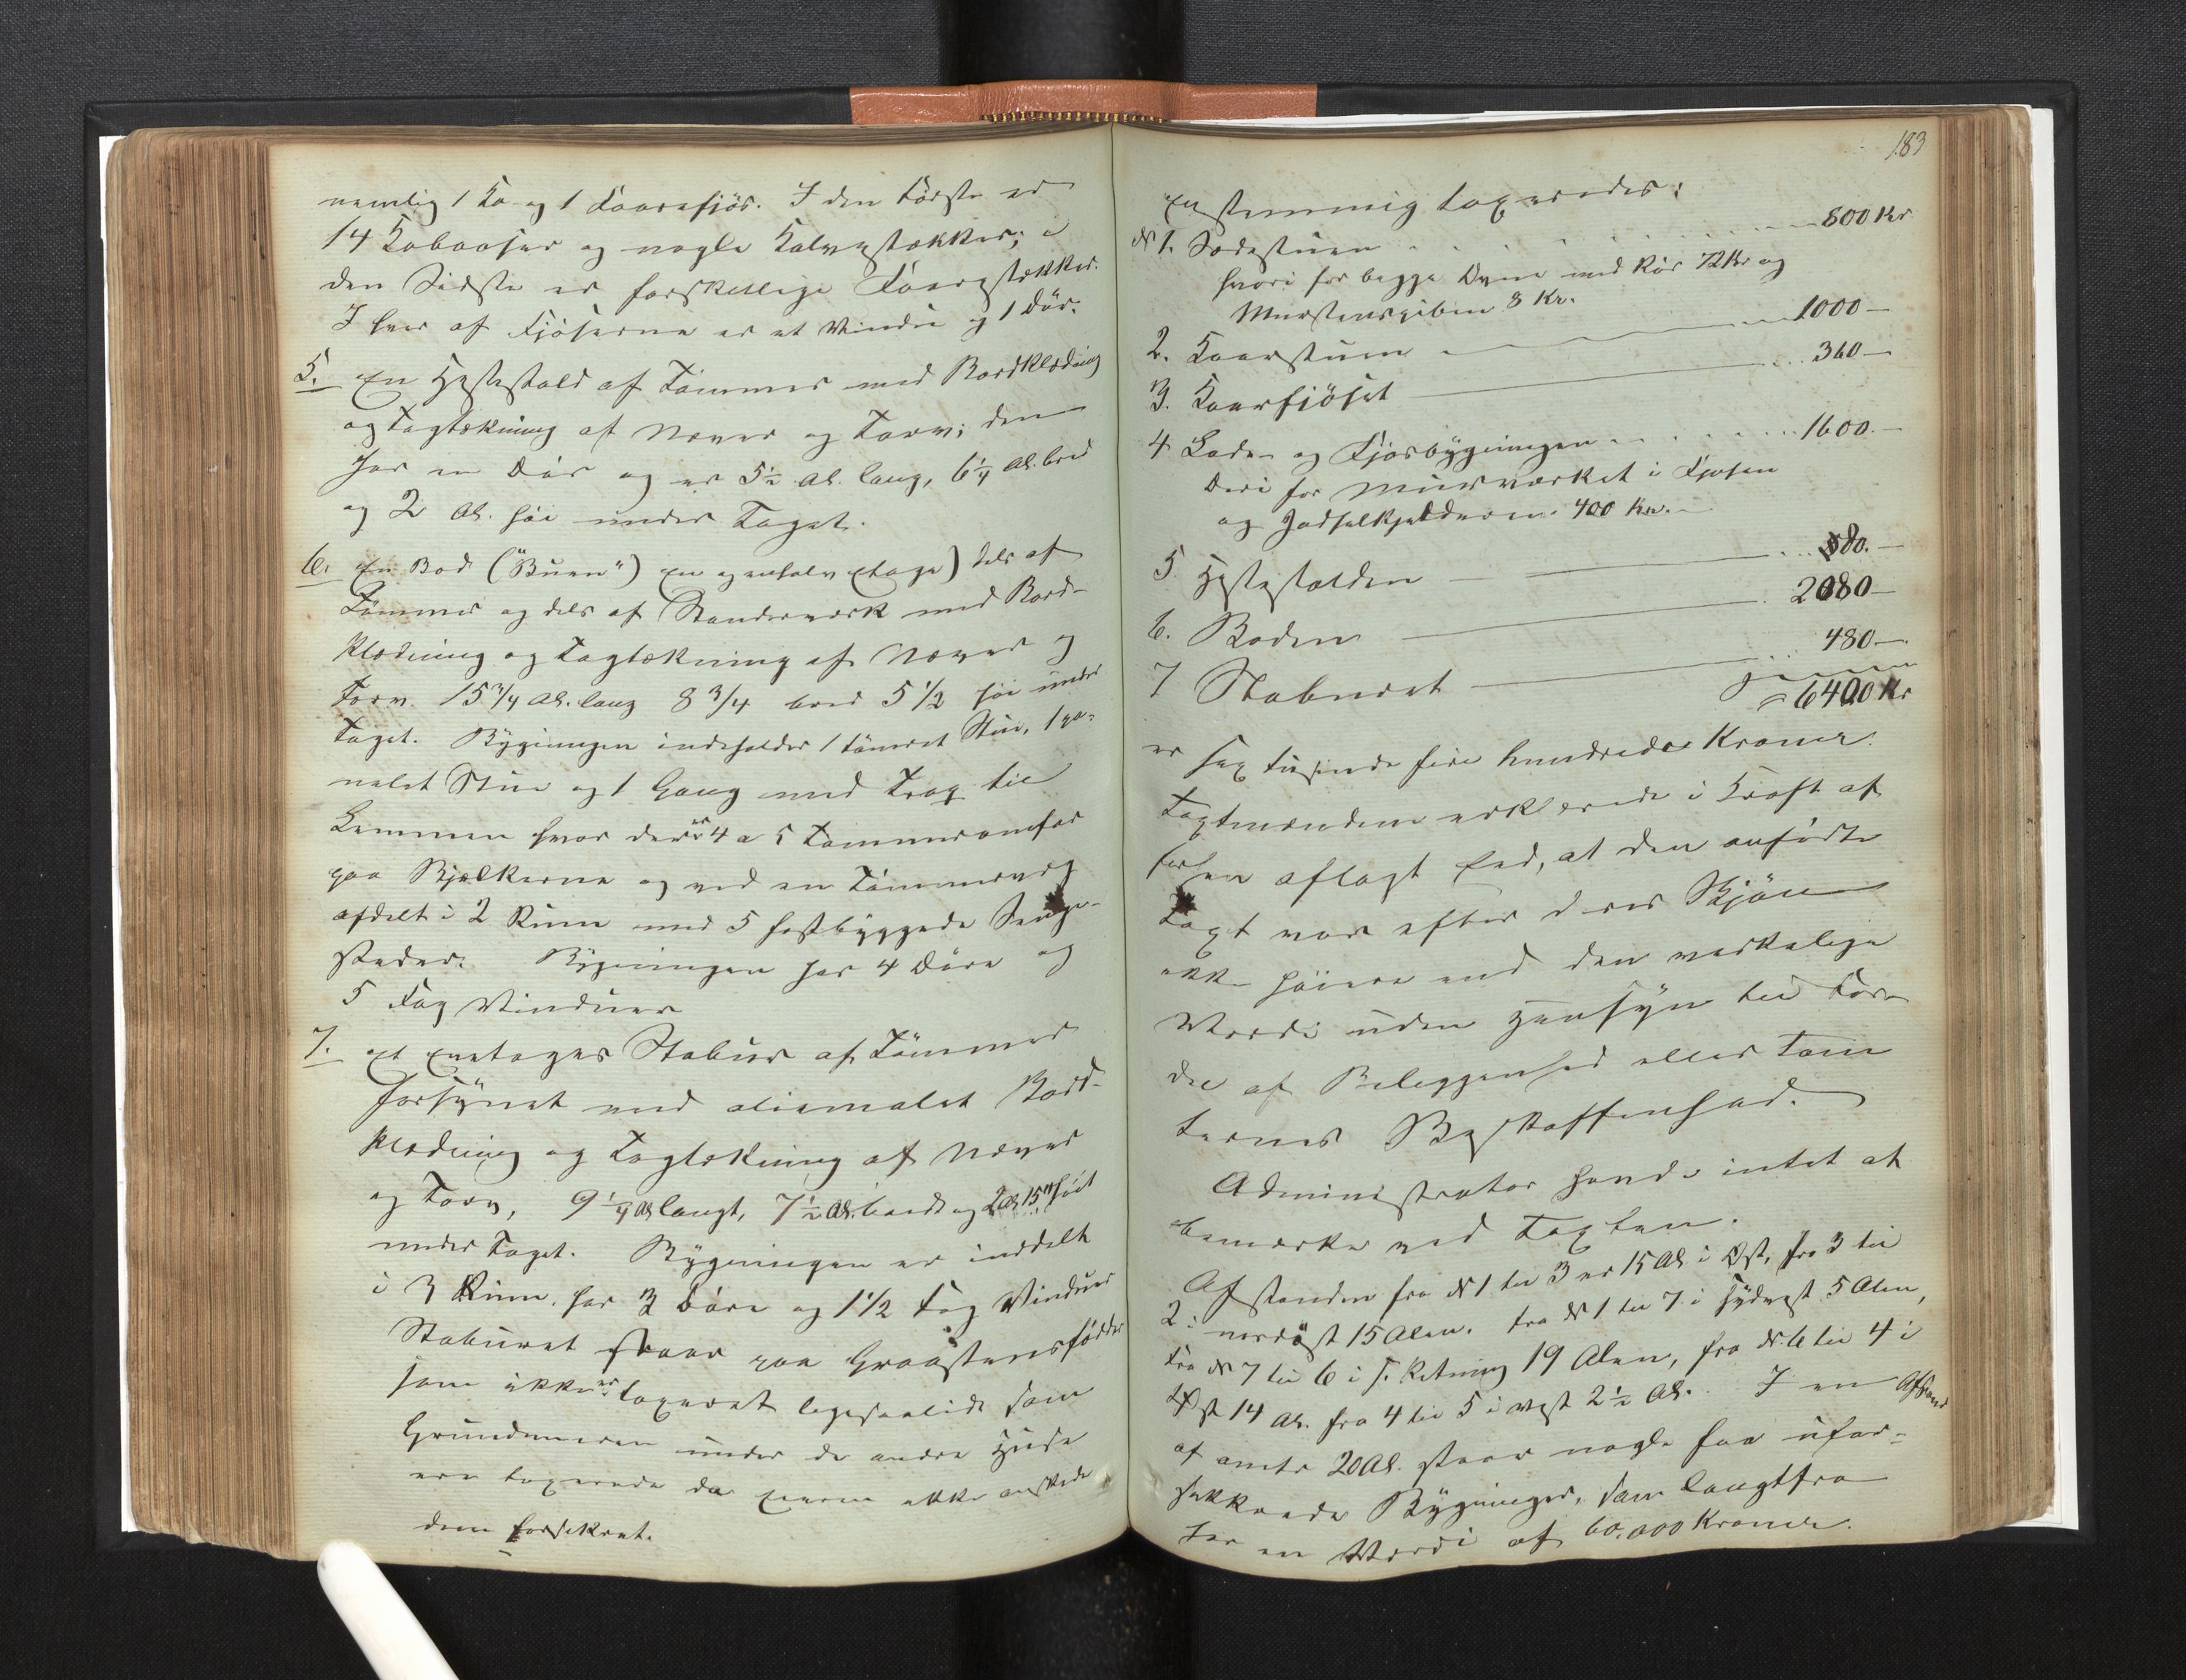 nemlig 1 Ko- og 1 Faarefjös. I den Første er
14 Kobaaser og nogle Kalvestækker; i
den Sidste er forskellige Faarestækker.
I hver af Fjöserne er et Vindu og 1 Dör.
5. En Hestestald af Tömmer med Bordklædning
og Tagtækning af Næver og Torv; den
har en Dör og er 5½ Al. lang, 6¼ Al. bred
og 2 Al. höi under Taget.
6. En Bod ("Buen") en og enhalv Etage) dels af
Tömmer og dels af Standerværk med Bord-
klædning og Tagtækning af Næver og
Torv. 15 3/4 Al. lang 8 3/4 bred 5 1/2 höi under
Taget. Bygningen indeholder 1 tömret Stue, 1 pa-
nelet Stue og 1 Gang med Trap til
Lemmen hvor der er 4 a 5 Tömmeromfar
paa Bjelkerne og ved en Tömmervæg
afdelt i 2 Rum med 5 fastbyggede Senge-
steder. Bygningen har 4 Döre og
5 Fag Vinduer
7. Et Enetages Stabur af Tömmer
forsynet med oliemalet Bord-
klædning og Tagtækning af Næver
og Torv, 9¼ Al langt, 7½ Al. bredt og 2 Al 15" höit
under Taget. Bygningen er inddelt
i 3 Rum, har 3 Döre og 1 1/2 Fag Vinduer
Staburet staar paa Graastensfødder
som ikke er taxeret ligesaalidt som
Grundmuren under de andre Huse
ere taxerede da Eieren ikke önskede
dem forsikret.
183
Enstemmig taxeredes:
№ 1. Sødestuen 800 Kr
hvori for begge Ovne med Rör 72 Kr og
Murstenspiben 8 Kr.
2. Kaarstuen 1000 —
3. Kaarfjöset 360 —
4 Lade- og Fjösbygningen 1600. —
Deri for Murværket i Fjøsen
og Jadselkjelderen 400 Kr. —
5 Hestestalden 80. —
6. Boden 2080 —
7 Staburet 480 —
= 6400 Kr
er sex tusinde fire hundrede Kroner.
Taxtmændene erklærede i Kraft af
forhen aflagt Eed, at den anførte
Taxt var efter deres Skjön
ikke höiere end den virkelige
Værdi uden Hensyn til For-
del af Beliggenhed eller Tom
ternes Beskaffenhed.
Administrator havde intet at
bemærke ved Taxten.
Afstanden fra № 1 til 3 er 15 Al i Øst, fra 3 til
2 i nordöst 15 Alen. fra № 1 til 7 i Sydvest 5 Alen,
fra № 7 til 6 i s. Retning 19 Alen, fra № 6 til 4 i
Øst 14 Al. fra 4 til 5 i vest 2½ Al. I en Afstand
af omtr 20 Al. staar nogle faa ufor-
sikkrede Bygninger, som langtfra
har en Værdi af 60,000 Kroner.